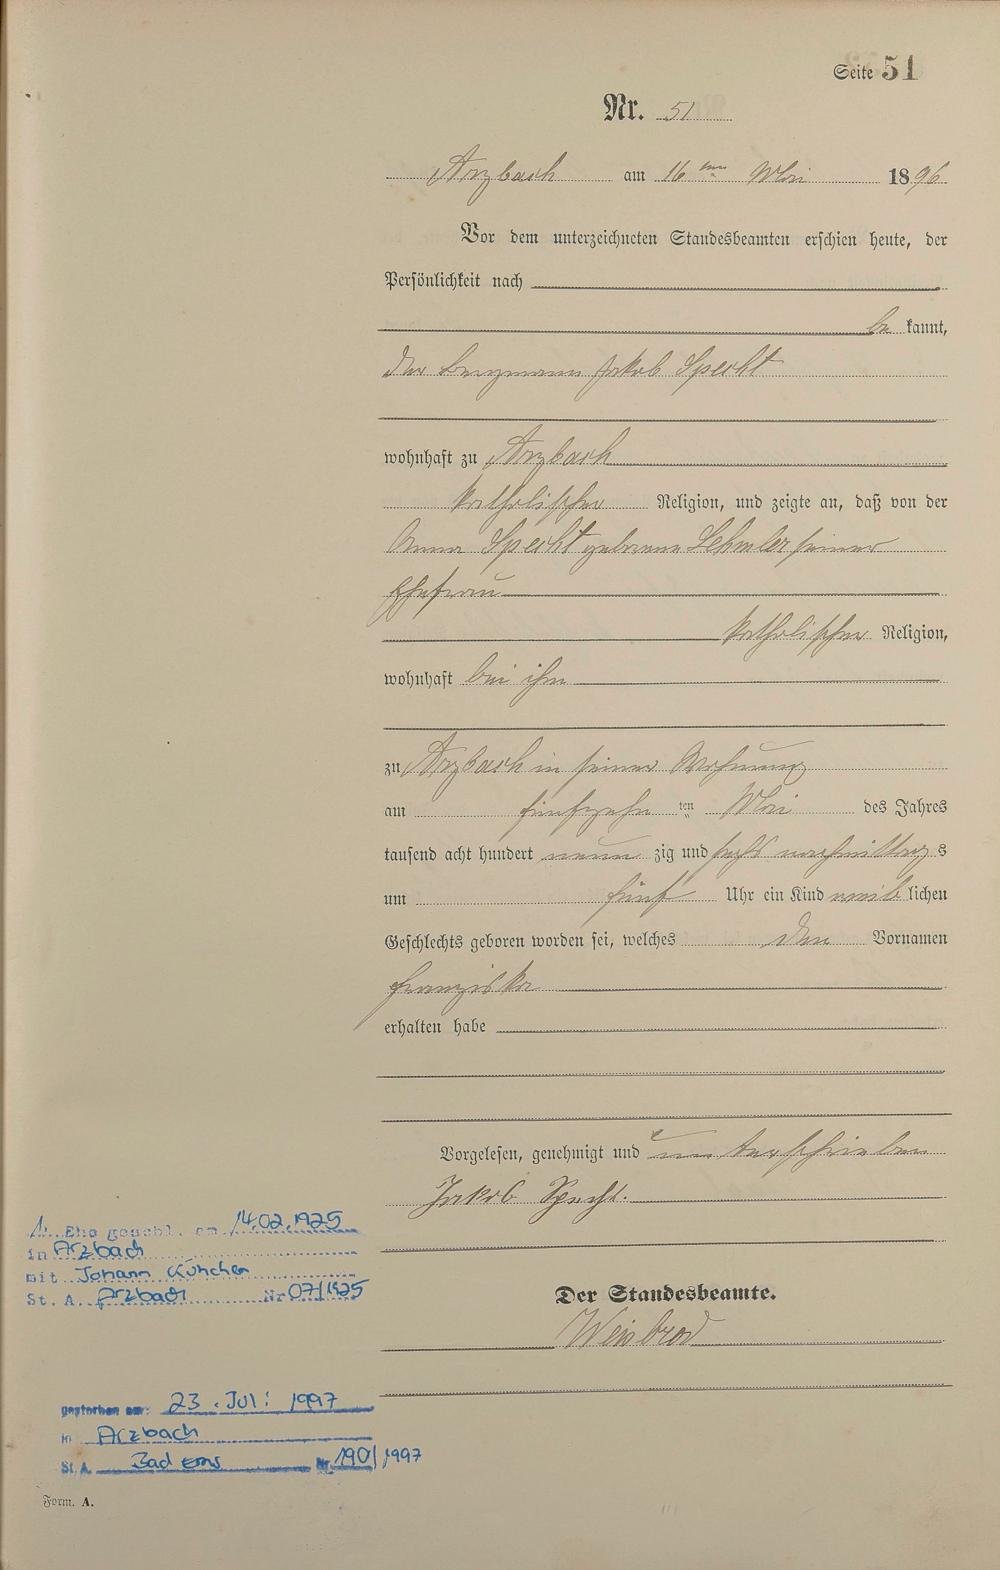 Seite 51
Nr. 51
Arzbach am 16 ten Mai 1896
Vor dem unterzeichneten Standesbeamten erschien heute, der
Persönlichkeit nach
be kannt,
der Bergmann Jakob Specht
wohnhaft zu Arzbach
katholischer Religion, und zeigte an, daß von der
Anna Specht geborene Lehmler seiner
Ehefrau
katholischer Religion,
wohnhaft bei ihm
zu Arzbach in seiner Wohnung
am fünfzehn ten Mai des Jahres
tausend acht hundert neun zig und sechs nachmittag s
um fünf Uhr ein Kind weib lichen
Geschlechts geboren worden sei, welches den Vornamen
Franziska
erhalten habe
Vorgelesen, genehmigt und unterschrieben
Jakob Specht.
Der Standesbeamte.
Weisbrod
1. Ehe geschl. am 14.02.1925
in Arzbach
mit Johann Künchen
St. A. Arzbach Nr 07/1925
gestorben am: 23. Juli 1997
in Arzbach
St. A. Bad Ems Nr. 190/1997
Form. A.